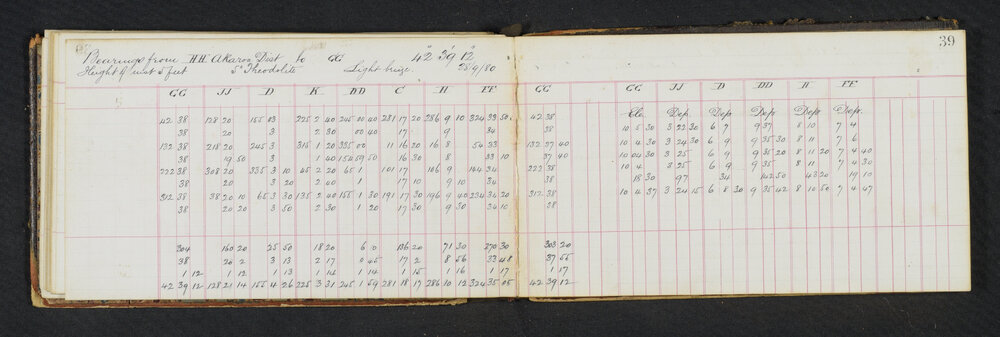 39
Bearings from HH Akaroa Dist to GG 42° 39' 12"
Height of inst 5 feet 5" Theodolite Light breeze 25/9/80
GG JJ D K DD C H FF GG GG JJ D DD H FF
42 38 128 20 155 03 225 2 40 245 00 40 281 17 20 286 9 10 324 33 50 42 38 Ele. Dep. Dep Dep Dep Dep.
38 20 3 2 30 00 40 17 9 34 38 10 5 30 3 22 30 6 7 9 37 8 10 7 4
132 38 218 20 245 3 315 1 20 335 00 11 16 20 16 8 54 33 132 37 40 10 4 30 3 24 30 6 9 9 35 30 8 11 7 6
38 19 50 3 1 40 154 59 50 16 30 8 33 10 37 40 10 04 30 3 25 6 9 9 35 20 8 11 20 7 4 40
222 38 308 20 335 3 10 45 2 20 65 1 101 17 106 9 144 34 222 38 10 4 3 25 6 9 9 35 8 11 7 4 30
38 20 3 20 2 40 1 17 10 9 10 34 38 18 30 97 34 142 50 43 20 19 10
312 38 38 20 10 65 3 30 135 2 40 155 1 30 191 17 30 196 9 40 234 34 20 312 38 10 4 37 3 24 15 6 8 30 9 35 42 8 10 50 7 4 47
38 20 20 3 50 2 30 1 20 17 30 9 30 34 10 38
304 160 20 25 50 18 20 6 0 136 20 71 30 270 30 303 20
38 20 2 3 13 2 17 0 45 17 2 8 56 33 48 37 55
1 12 1 12 1 13 1 14 1 14 1 15 1 16 1 17 1 17
42 39 12 128 21 14 155 4 26 225 3 31 245 1 59 281 18 17 286 10 12 324 35 05 42 39 12